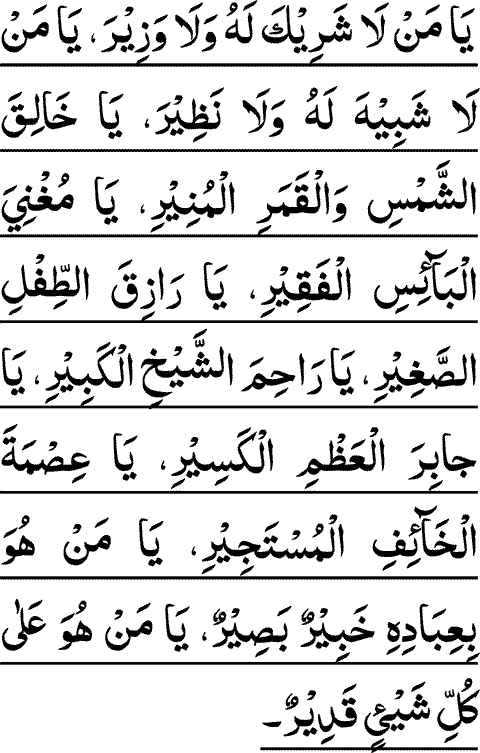 يَا مَنْ لَا شَرِيْكَ لَهُ وَلَا وَزِيْرَ، يَا مَنْ
لَا شَبِيْهَ لَهُ وَلَا نَظِيْرَ، يَا خَالِقَ
الشَّمْسِ وَالْقَمَرِ الْمُنِيْرِ، يَا مُغْنِيَ
الْبَآئِسِ الْفَقِيْرِ، يَا رَازِقَ الطِّفْلِ
الصَّغِيْرِ، يَا رَاحِمَ الشَّيْخِ الْكَبِيْرِ، يَا
جابِرَ الْعَظْمِ الْكَسِيْرِ، يَا عِصْمَةَ
الْخَآئِفِ الْمُسْتَجِيْرِ، يَا مَنْ هُوَ
بِعِبَادِهٖ خَبِيْرٌ بَصِيْرٌ، يَا مَنْ هُوَ عَلٰى
كُلِّ شَيْئٍ قَدِيْرٌ۔